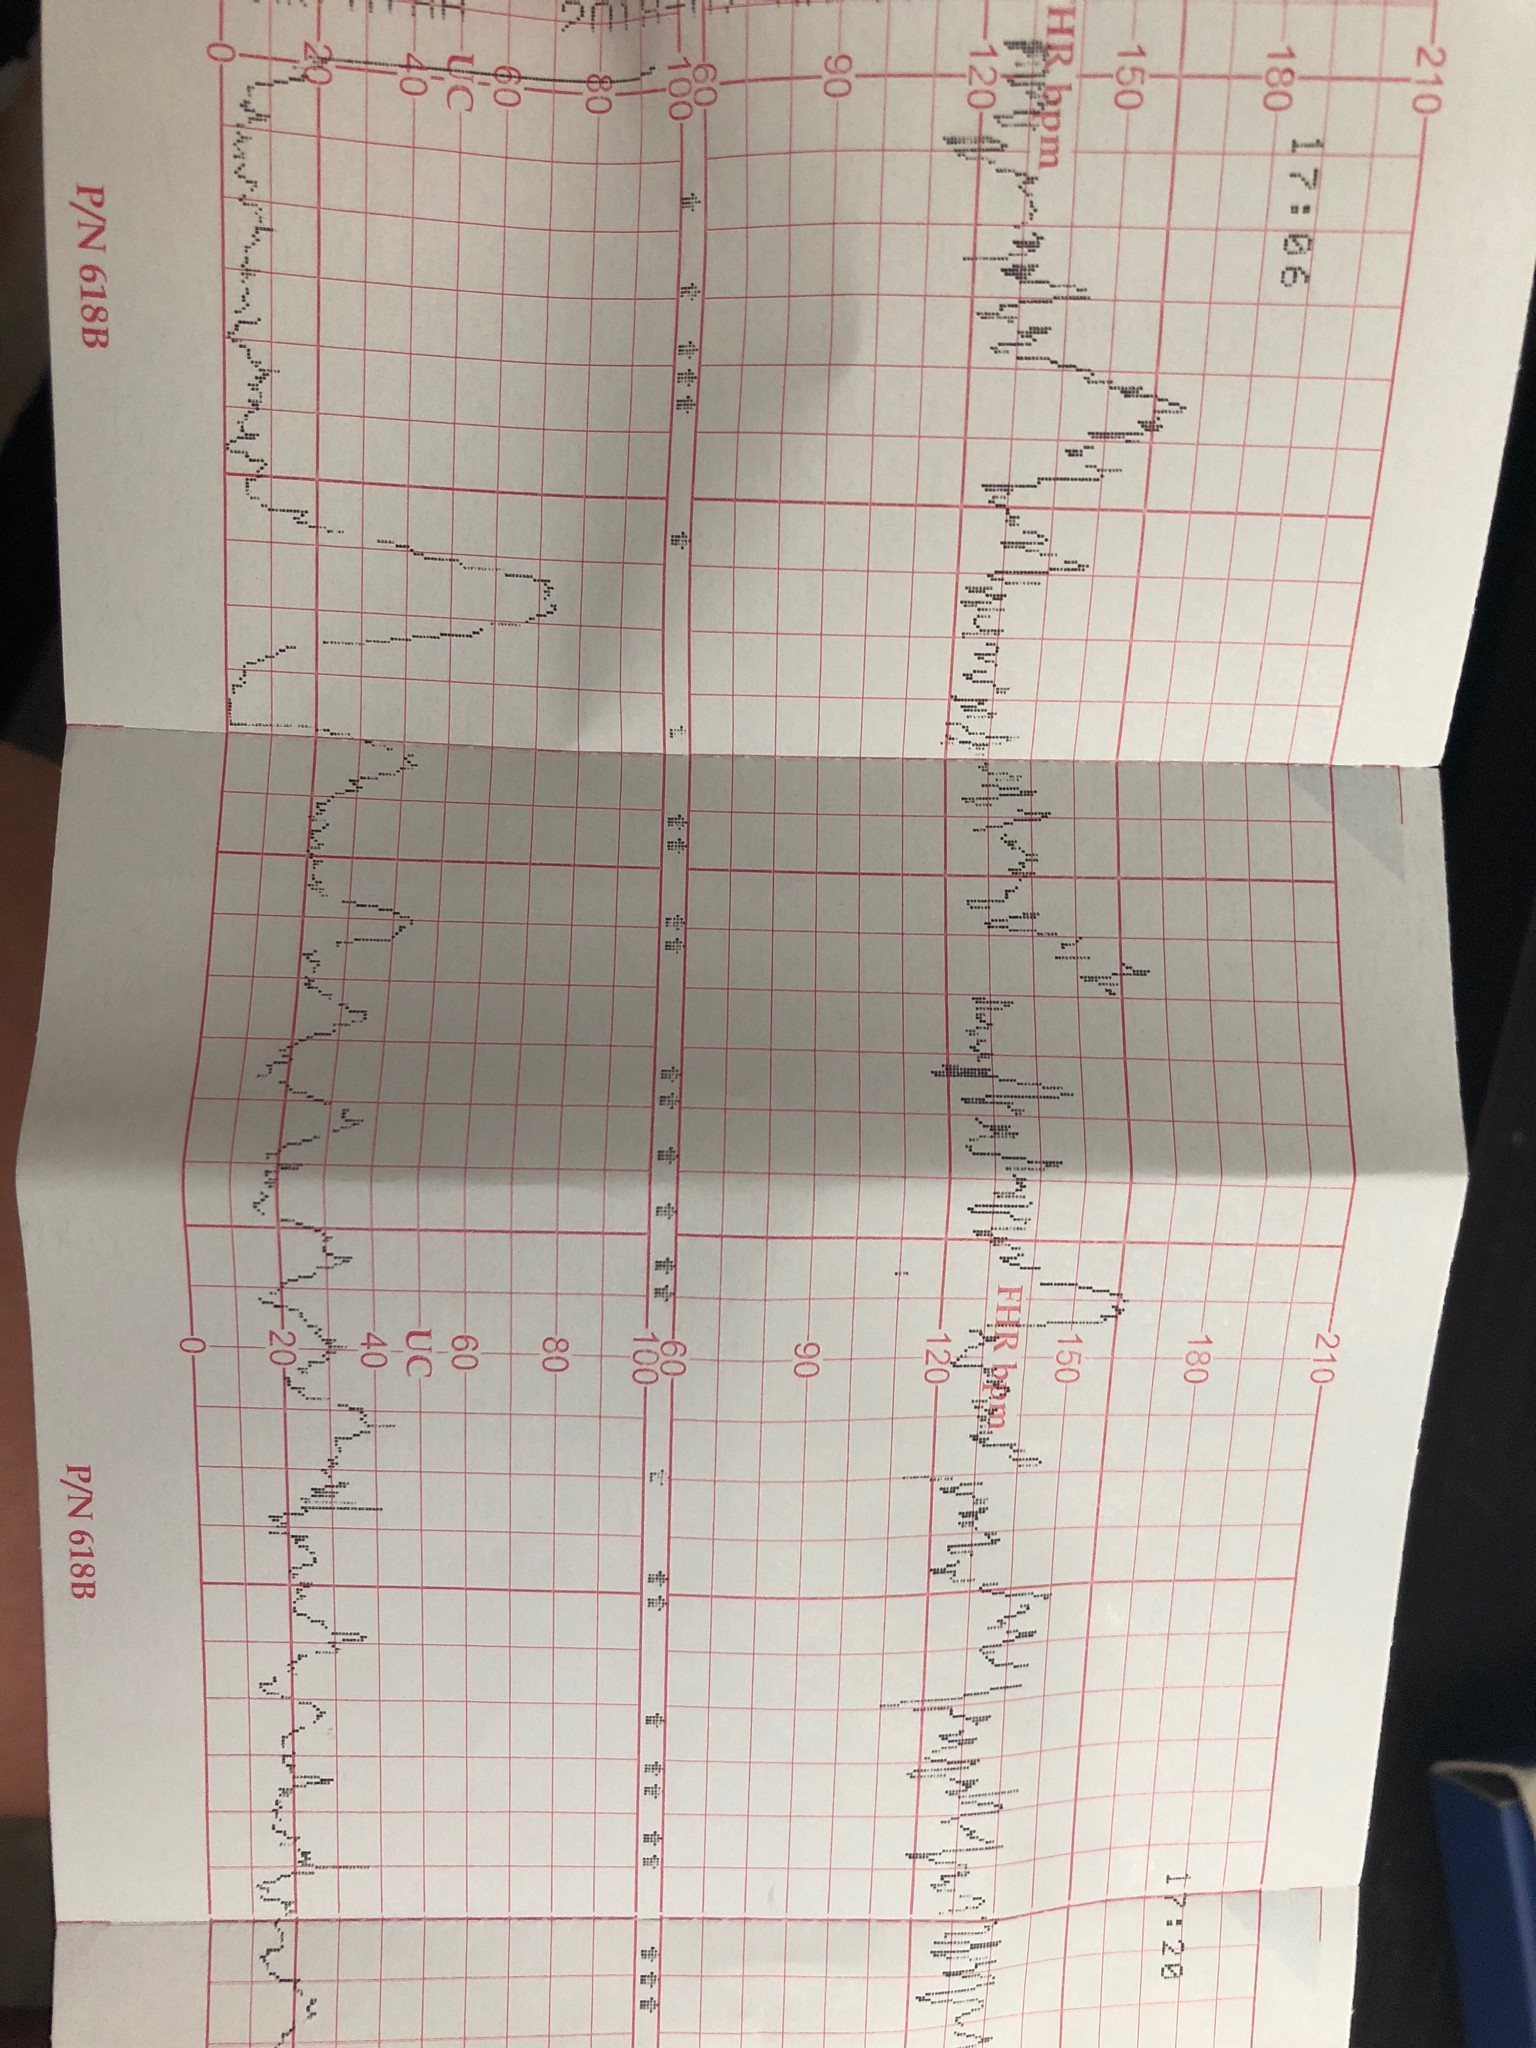 210
180
150
FHR bpm
120
90
60
100
80
60
UC
40
20
0
17:06
P/N 618B
210
180
150
FHR bpm
120
90
60
100
80
60
UC
40
20
0
17:20
P/N 618B